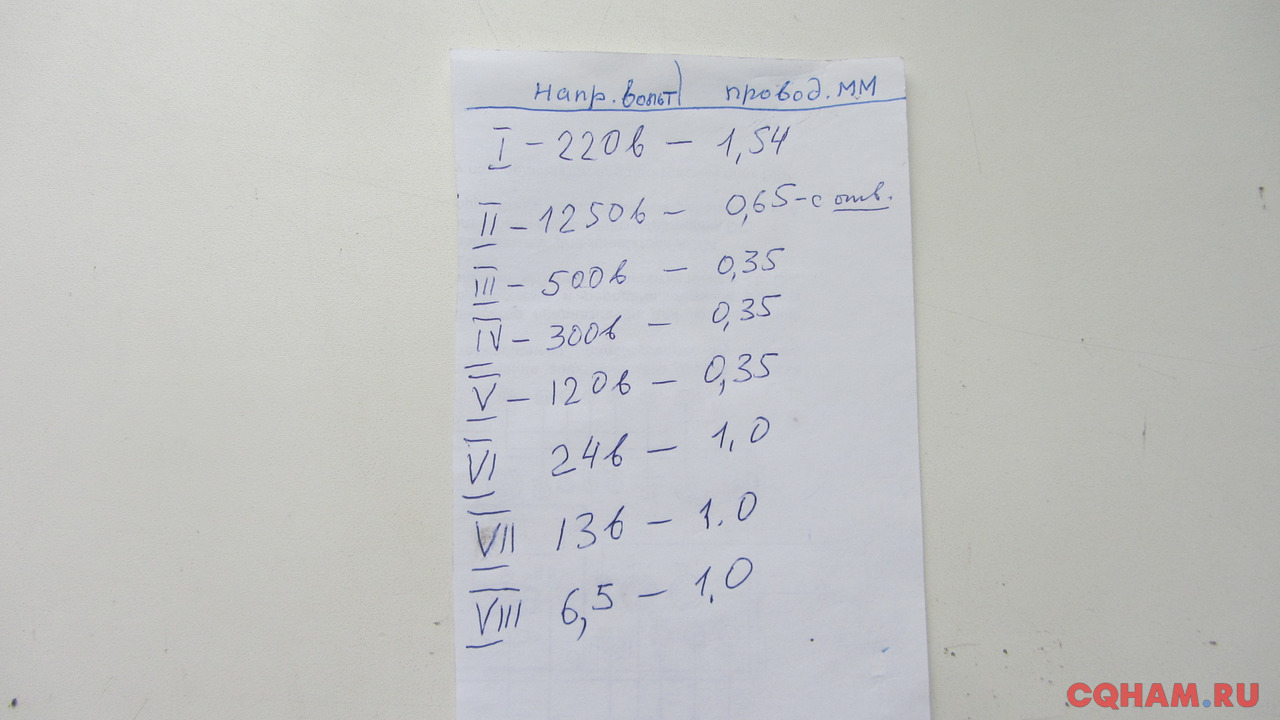 Напр. вольт) провод. мм
I - 220в - 1,54
II - 1250в - 0,65 - с отв.
III - 500в - 0,35
IV - 300в - 0,35
V - 120в - 0,35
VI 24в - 1,0
VII 13в - 1.0
VIII 6,5 - 1,0
CQHAM.RU